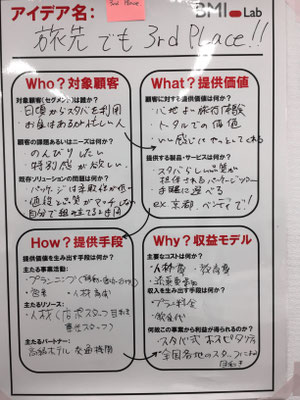 3rd Place
アイデア名:
BMI Lab
旅先でも 3rd Place!!
Who?対象顧客
対象顧客(セグメント)は誰か?
日頃からスタバを利用
お金はあるが忙しい人
顧客の課題あるいはニーズは何か?
のんびりしたい
特別感が欲しい
既存ソリューションの問題は何か?
パッケージは
値段と品質がマッチし
自分で組み立てると
What?提供価値
顧客に対する提供価値は何か?
心地よい旅行体験
トータルでの価値
いい感じにやっといてくれる
提供する製品・サービスは何か?
スタバらしい品質が
担保されるパッケージツアー
お手軽に選べる
ex. 京都、ベンティで!
How?提供手段
提供価値を生み出す手段は何か?
主たる事業活動:
プランニング
営業 人材育成
主たるリソース:
人材(店舗スタッフ
専任スタッフ)
主たるパートナー:
高級ホテル 交通機関
Why?収益モデル
主なコストは何か?
人材費
収入を生み出す手段は何か?
プラン料金
飲食代
何故この事業から利益が得られるのか?
スタバ式ホスピタリティ
全国各地のスタッフによる